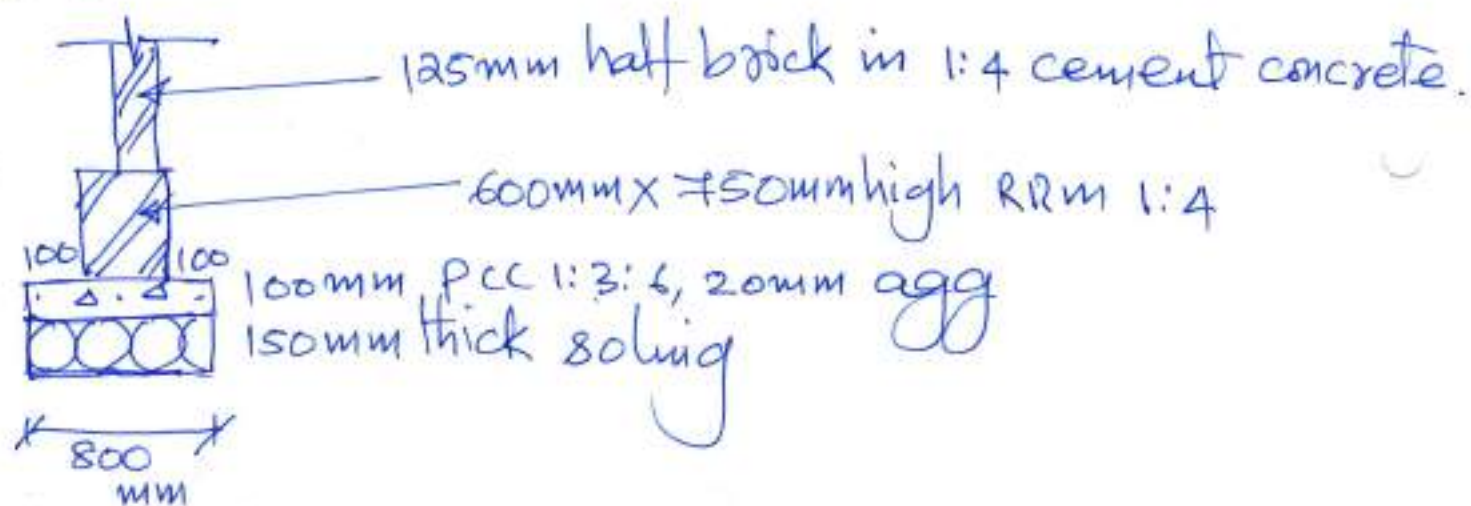 125mm half brick in 1:4 cement concrete.
600mm x 750mm high RRM 1:4
100 100
100mm PCC 1:3:6, 20mm agg
150mm thick soling
800
mm